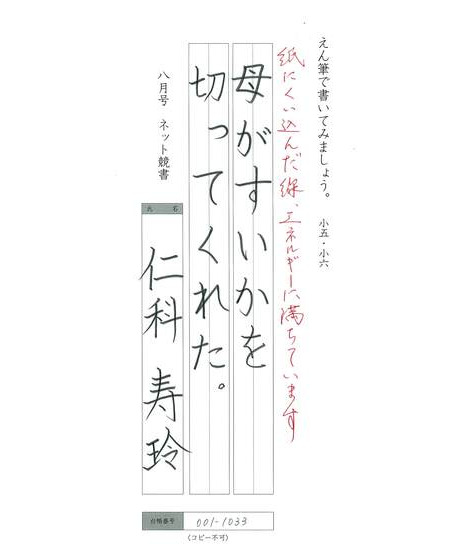 えん筆で書いてみましょう。 小五・小六
紙にくい込んだ線、エネルギーに満ちています
母がすいかを
切ってくれた。
八月号 ネット競書
氏 名
仁科 寿玲
台帳番号 001-1033
(コピー不可)